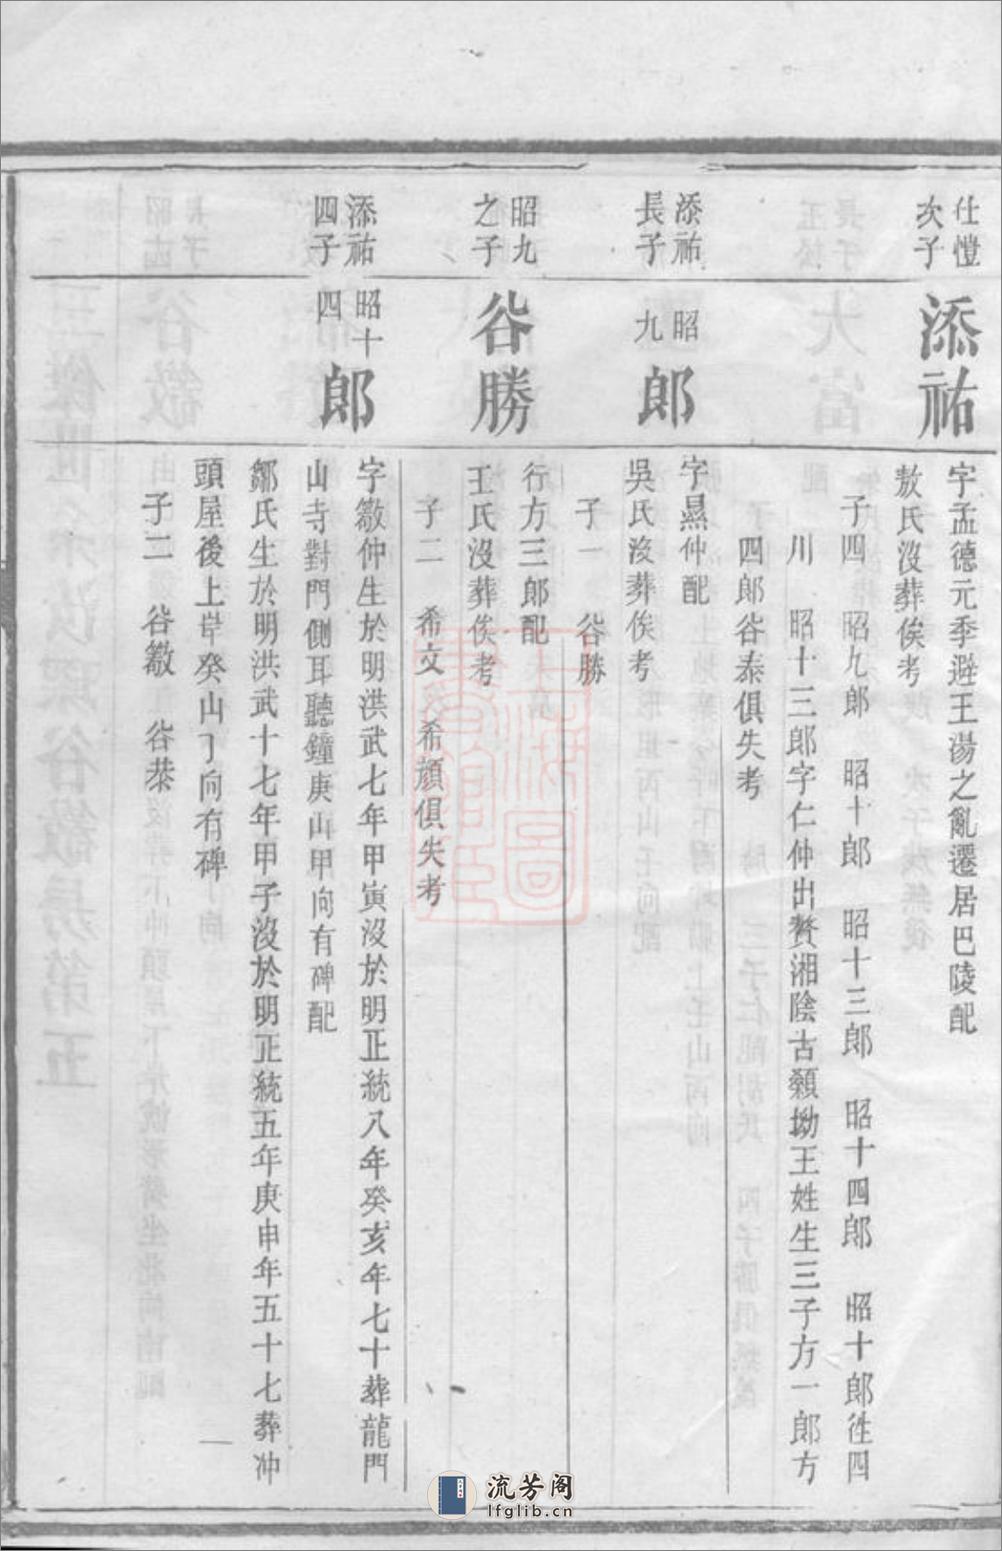 仕愷
次子
添祐
字孟德元季避王湯之亂遷居巴陵配
敖氏沒葬俟考
子四　昭九郎　昭十郎　昭十三郎　昭十四郎　昭十郎徃四
川　昭十三郎字仁仲出贅湘陰古額坳王姓生三子方一郎方
四郎谷泰俱失考
添祐
長子
昭九郎
字㬎仲配
吳氏沒葬俟考
子一　谷勝
昭九
之子
谷勝
行方三郎配
王氏沒葬俟考
子二　希文　希顔俱失考
添祐
四子
昭十四郎
字敫仲生於明洪武七年甲寅沒於明正統八年癸亥年七十葬龍門
山寺對門側耳聽鐘庚山甲向有碑配
鄒氏生於明洪武十七年甲子沒於明正統五年庚申年五十七葬冲
頭屋後上岸癸山丁向有碑
子二　谷　谷恭
流芳阁
lfglib.cn